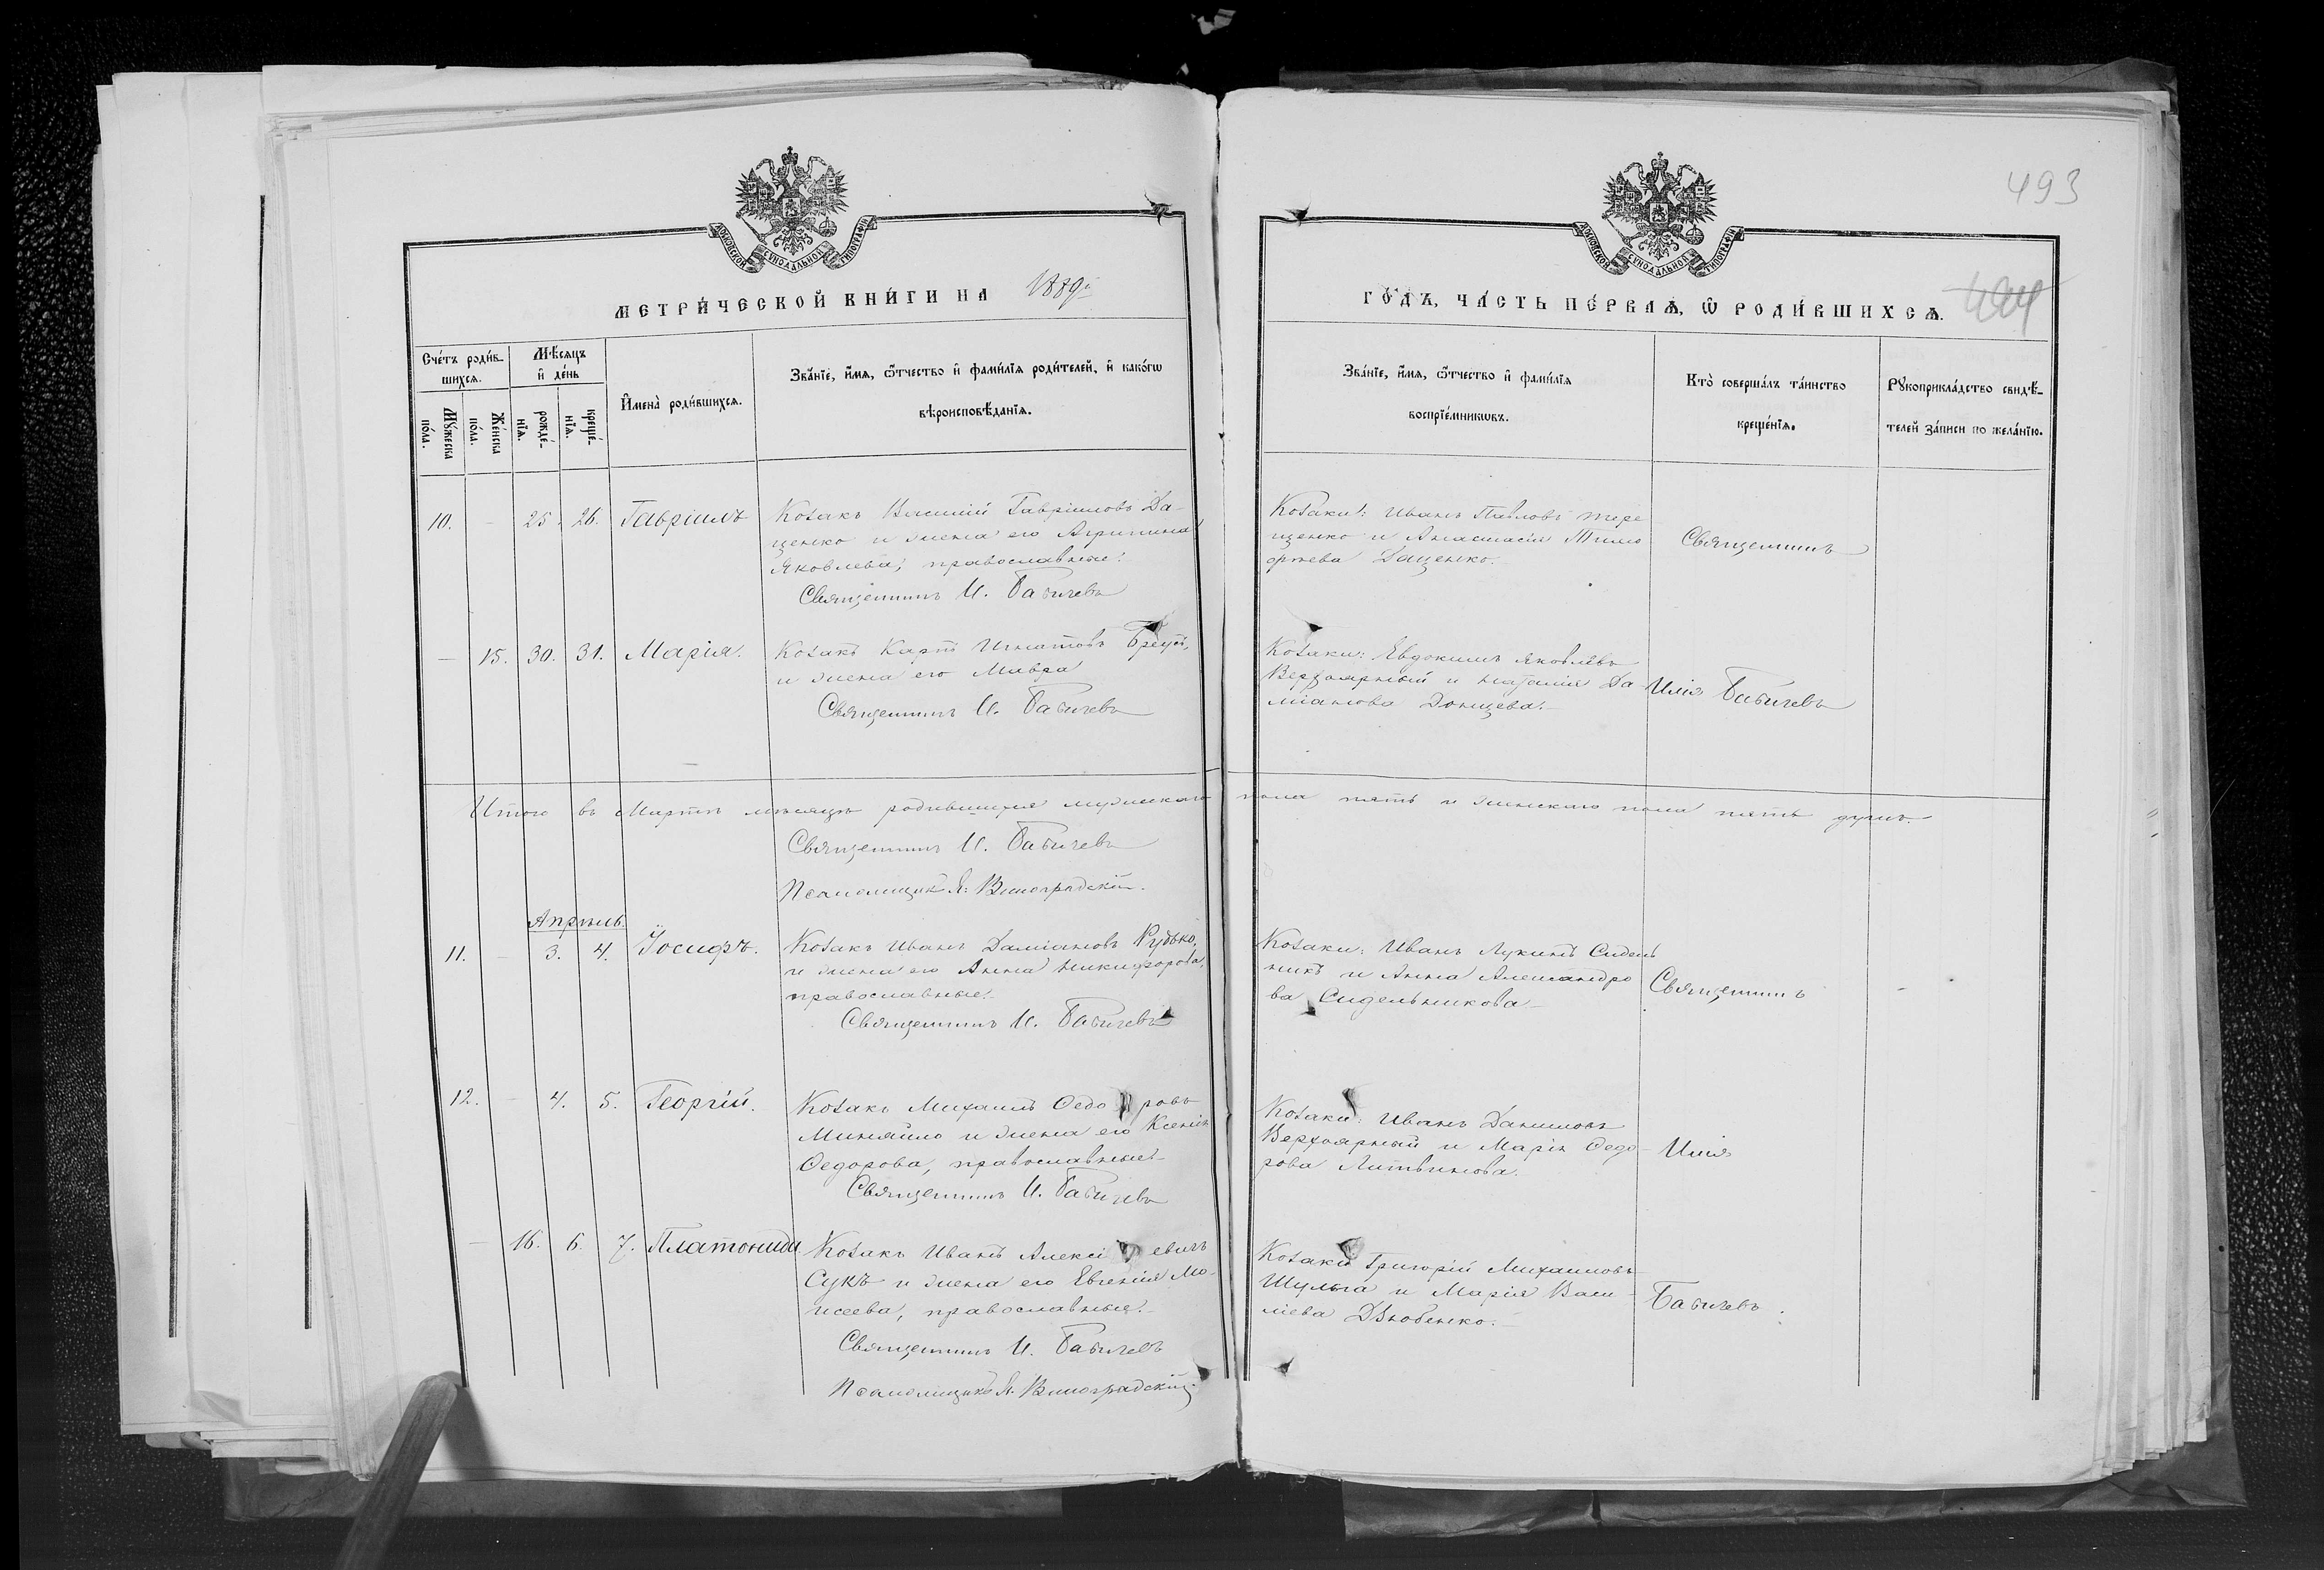 493
494
МОСКОВСКОЙ СѴНОДАЛЬНОЙ ТИПОГРАФІИ
МОСКОВСКОЙ СѴНОДАЛЬНОЙ ТИПОГРАФІИ
МЕТРИ́ЧЕСКОЙ КНИ́ГИ НА 1889й
ГО́ДЪ, ЧА́СТЬ ПЕ́РВАѦ, Ѽ РОДИ́ВШИХСѦ.
Сче́тъ роди́в-
шихсѧ.
Мѣ́сѧцъ
и҆ де́нь
Мꙋ́жеска
по́ла.
Же́нска
по́ла.
рожде́-
нїѧ.
креще́-
нїѧ.
И҆мена̀ роди́вшихсѧ.
Зва́нїе, и҆́мѧ, ѻ҆́тчество и҆ фами́лїѧ роди́телей, и҆ како́гѡ
вѣроисповѣ́данїѧ.
Зва́нїе, и҆́мѧ, ѻ҆́тчество и҆ фами́лїѧ
воспрїе́мникѡвъ.
Кто̀ соверша́лъ та́инство
креще́нїѧ.
Рꙋкоприкла́дство свидѣ́-
телей за́писи по жела́нїю.
10. - 25. 26. Гавріилъ
Козакъ Василій Гавріиловъ Да-
ценко и жена его Агрипина
Яковлева, православные.
Священникъ И. Бабичевъ
Козаки: Иванъ Павловъ Тере
щенко и Анастасія Тимо
фѣева Даценко.
Священникъ
— 15. 30. 31. Марія.
Козакъ Карпъ Игнатовъ
и жена его Мавра
Священникъ И. Бабичевъ
Козаки: Евдокимъ Яковлевъ
Верхоярный и Наталія Да-
міанова Донцева.
Илія Бабичевъ
Итого въ Мартѣ мѣсяцѣ родившихся мужескаго пола пять и женскаго пола пять душъ.
Священникъ И. Бабичевъ
Псаломщикъ Я. Виноградскій.
Апрѣль.
11. - 3. 4. Іосифъ.
Козакъ Иванъ Даміановъ Рудько,
и жена его Анна Никифорова,
православные.
Священникъ И. Бабичевъ
Козаки: Иванъ Лукинъ Сидель
никъ и Анна Александро
ва Сидельникова
Священникъ
12. - 4. 5. Георгій.
Козакъ Михаилъ Ѳедоровъ
Миняйло и жена его Ксенія
Ѳедорова, православные.
Священникъ И. Бабичевъ
Козаки: Иванъ Даниловъ
Верхоярный и Марія Ѳедо-
рова Литвинова.
Илія
— 16. 6. 7. Платонида
Козакъ Иванъ Алексіевичъ
Сукъ и жена его Евгенія Мо-
исеева, православные.
Священникъ И. Бабичевъ
Псаломщикъ Я. Виноградскій
Козаки Григорій Михаиловъ
Шульга и Марія Васи-
ліева Дзюбенко.
Бабичевъ.